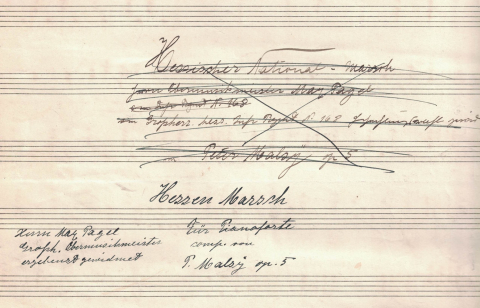 Hessischer National-Marsch
Herrn Obermusikmeister Max Pagel
Inft. Regt. N. 168
Grosherz. Hess. Inft. Regt. N. 168
Peter Malzÿ op 5
Hessen Marsch
Herrn Max Pagel
Großh. Obermusikmeister
ergebenst gewidmet
Für Pianoforte
comp. von
P. Malzÿ op. 5